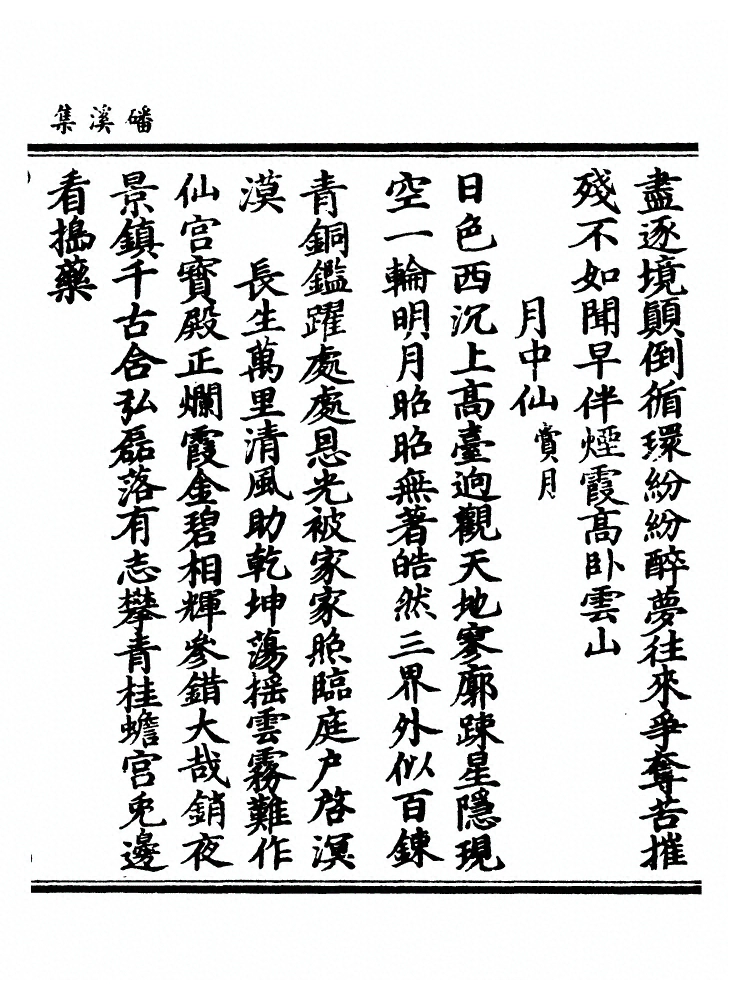 磻溪集
盡逐境顛倒循環紛紛醉夢往來爭奪苦摧
殘不如聞早伴煙霞高卧雲山
月中仙 賞月
日色西沉上高臺逈觀天地寥廓踈星隱現
空一輪明月昭昭無著皓然三界外似百鍊
青銅鑑躍處處恩光被家家照臨庭户啓溟
漠 長生萬里清風助乾坤蕩摇雲霧難作
仙宫寳殿正爛霞金碧相輝參錯大哉銷夜
景鎮千古含弘磊落有志攀青桂蟾宫兎邊
看搗藥